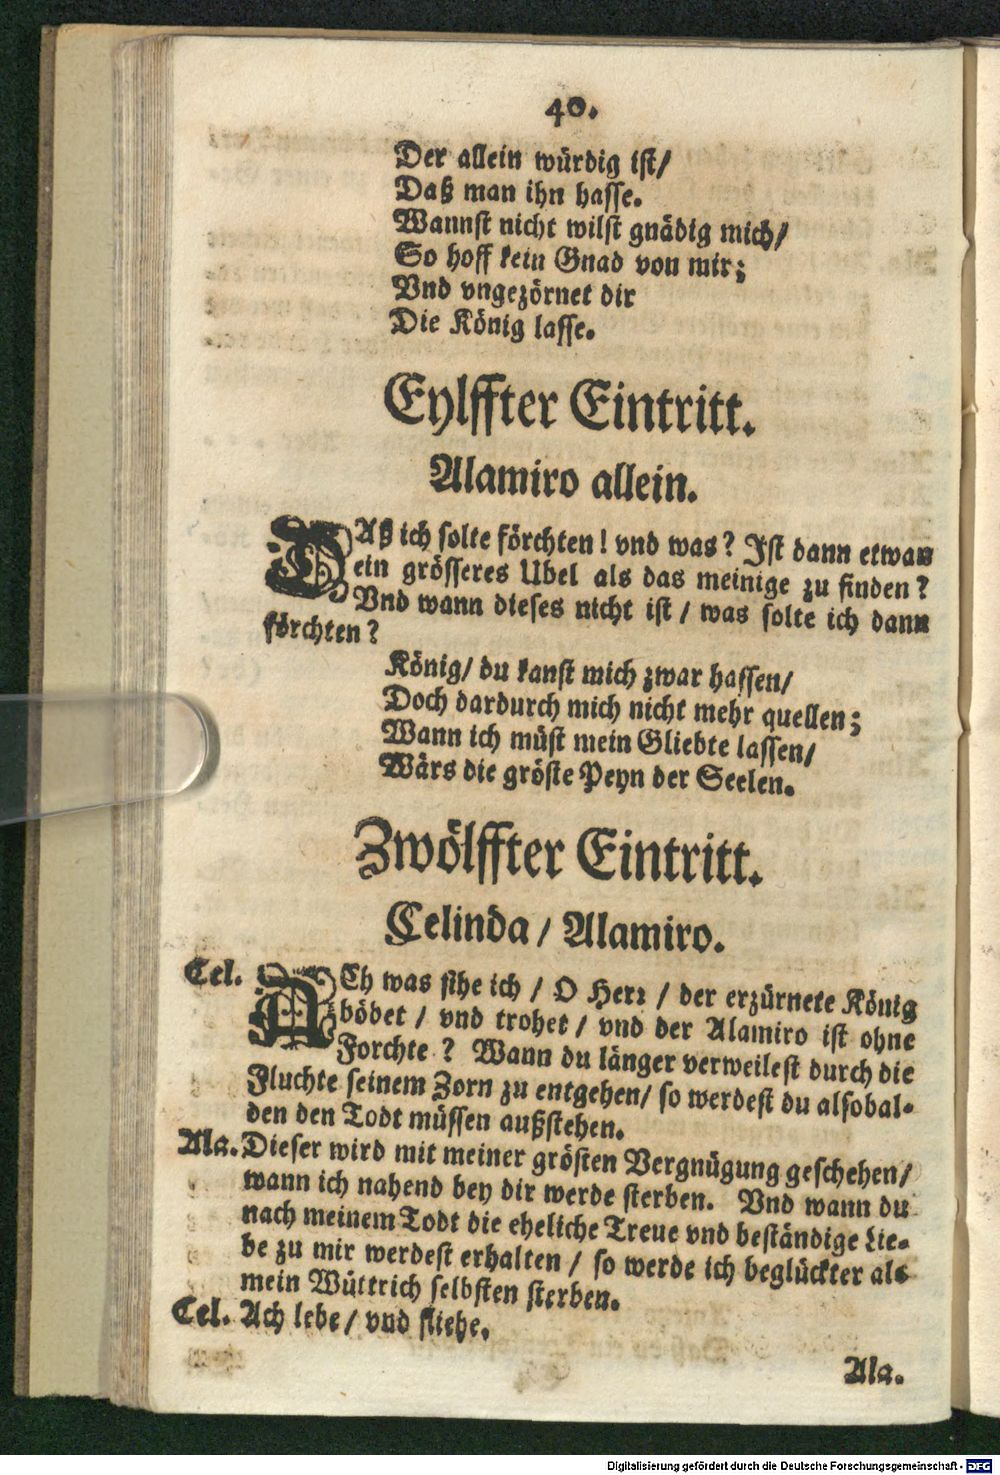 40.
Der allein würdig ist/
Daß man ihn hasse.
Wannst nicht wilst gnädig mich/
So hoff kein Gnad von mir;
Vnd vngezörnet dir
Die König lasse.
Eylffter Eintritt.
Alamiro allein.
DAß ich solte förchten! vnd was? Ist dann etwan
ein grösseres Ubel als das meinige zu finden?
Vnd wann dieses nicht ist / was solte ich dann
förchten?
König/ du kanst mich zwar hassen/
Doch dardurch mich nicht mehr quellen;
Wann ich müst mein Gliebte lassen/
Wärs die gröste Peyn der Seelen.
Zwölffter Eintritt.
Celinda / Alamiro.
Cel. ACh was sihe ich / O Herr / der erzürnete König
bödet / vnd trohet / vnd der Alamiro ist ohne
Forchte? Wann du länger verweilest durch die
Fluchte seinem Zorn zu entgehen/ so werdest du alsobal-
den den Todt müssen außstehen.
Ala. Dieser wird mit meiner grösten Vergnügung geschehen/
wann ich nahend bey dir werde sterben. Vnd wann du
nach meinem Todt die eheliche Treue vnd beständige Lie-
be zu mir werdest erhalten / so werde ich beglückter als
mein Wüttrich selbsten sterben.
Cel. Ach lebe / vnd fliehe.
Ala.
Digitalisierung gefördert durch die Deutsche Forschungsgemeinschaft - DFG